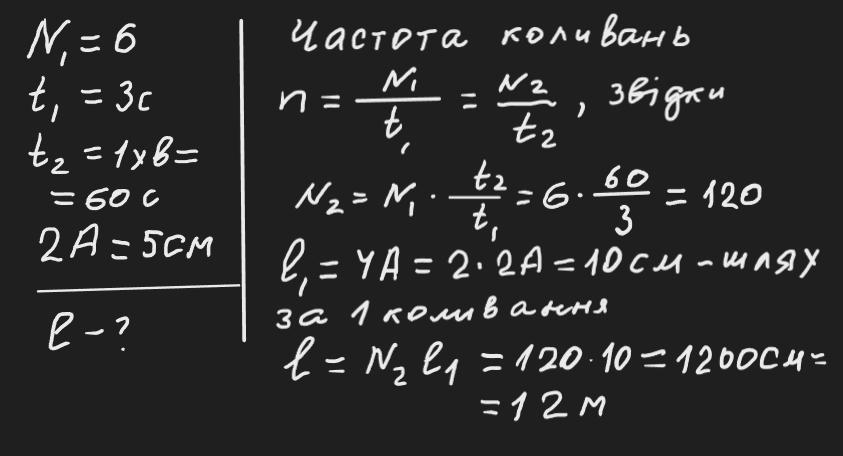 N₁ = 6
t₁ = 3с
t₂ = 1хв =
= 60 с
2A = 5см
ℓ - ?
Частота коливань
n = N₁/t₁ = N₂/t₂, звідки
N₂ = N₁ · t₂/t₁ = 6 · 60/3 = 120
ℓ₁ = 4A = 2·2A = 10см - шлях
за 1 коливання
ℓ = N₂ ℓ₁ = 120·10 = 1200см =
= 12м